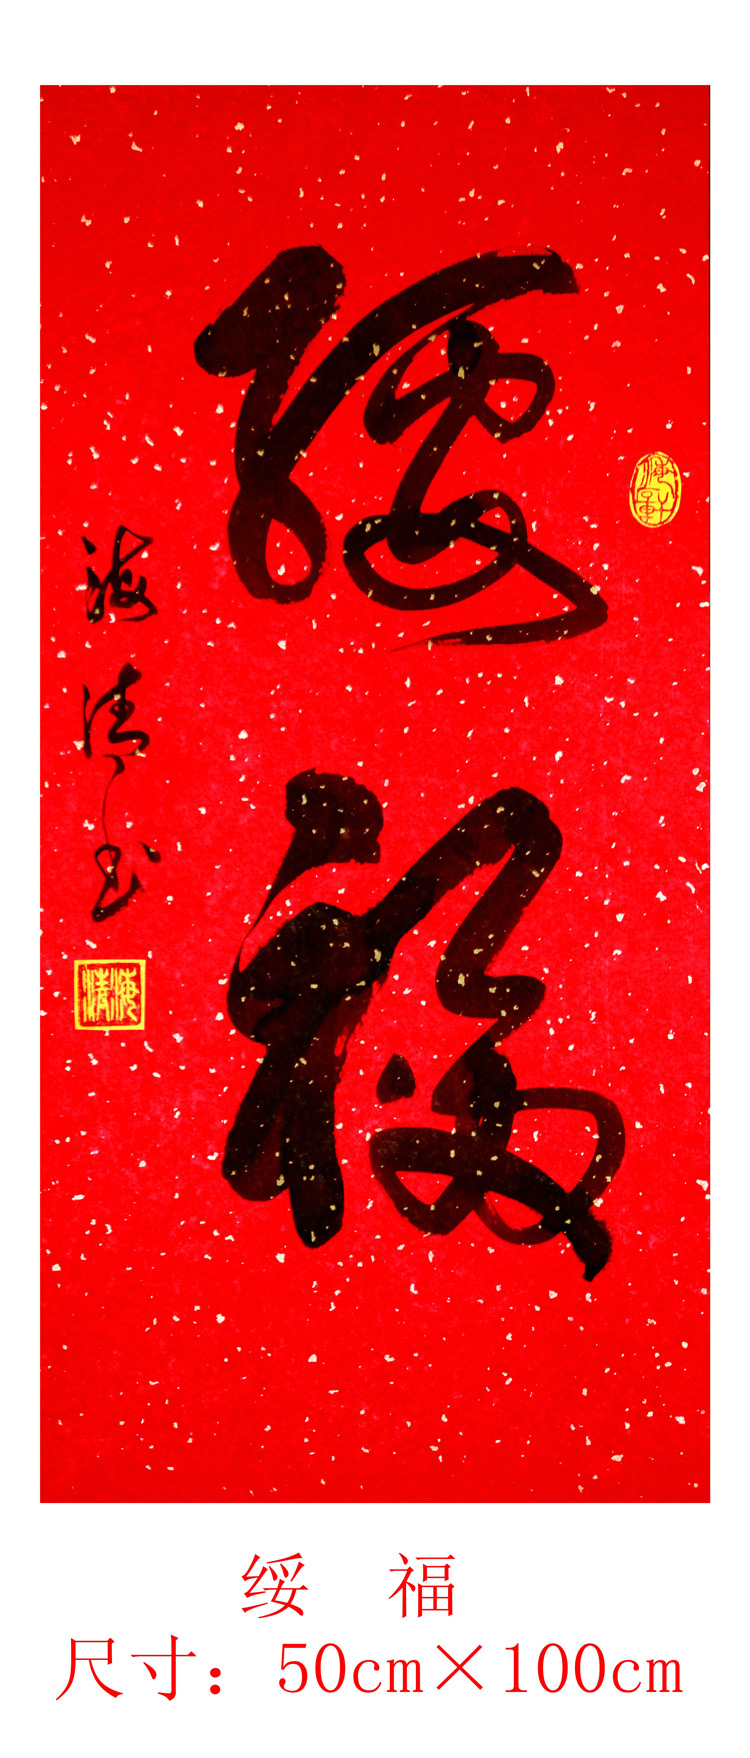 绥福
海清书
海清
绥 福
尺寸：50cm×100cm